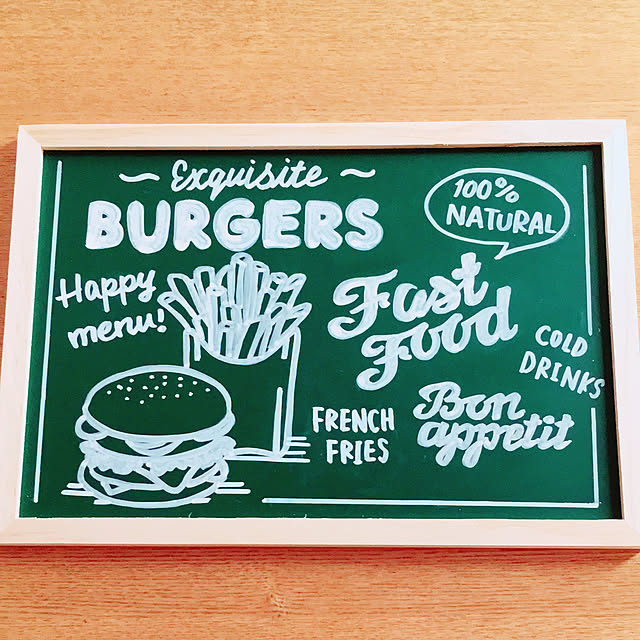 Exquisite
BURGERS
100%
NATURAL
Happy
menu!
Fast
Food
COLD
DRINKS
FRENCH
FRIES
Bon
appetit